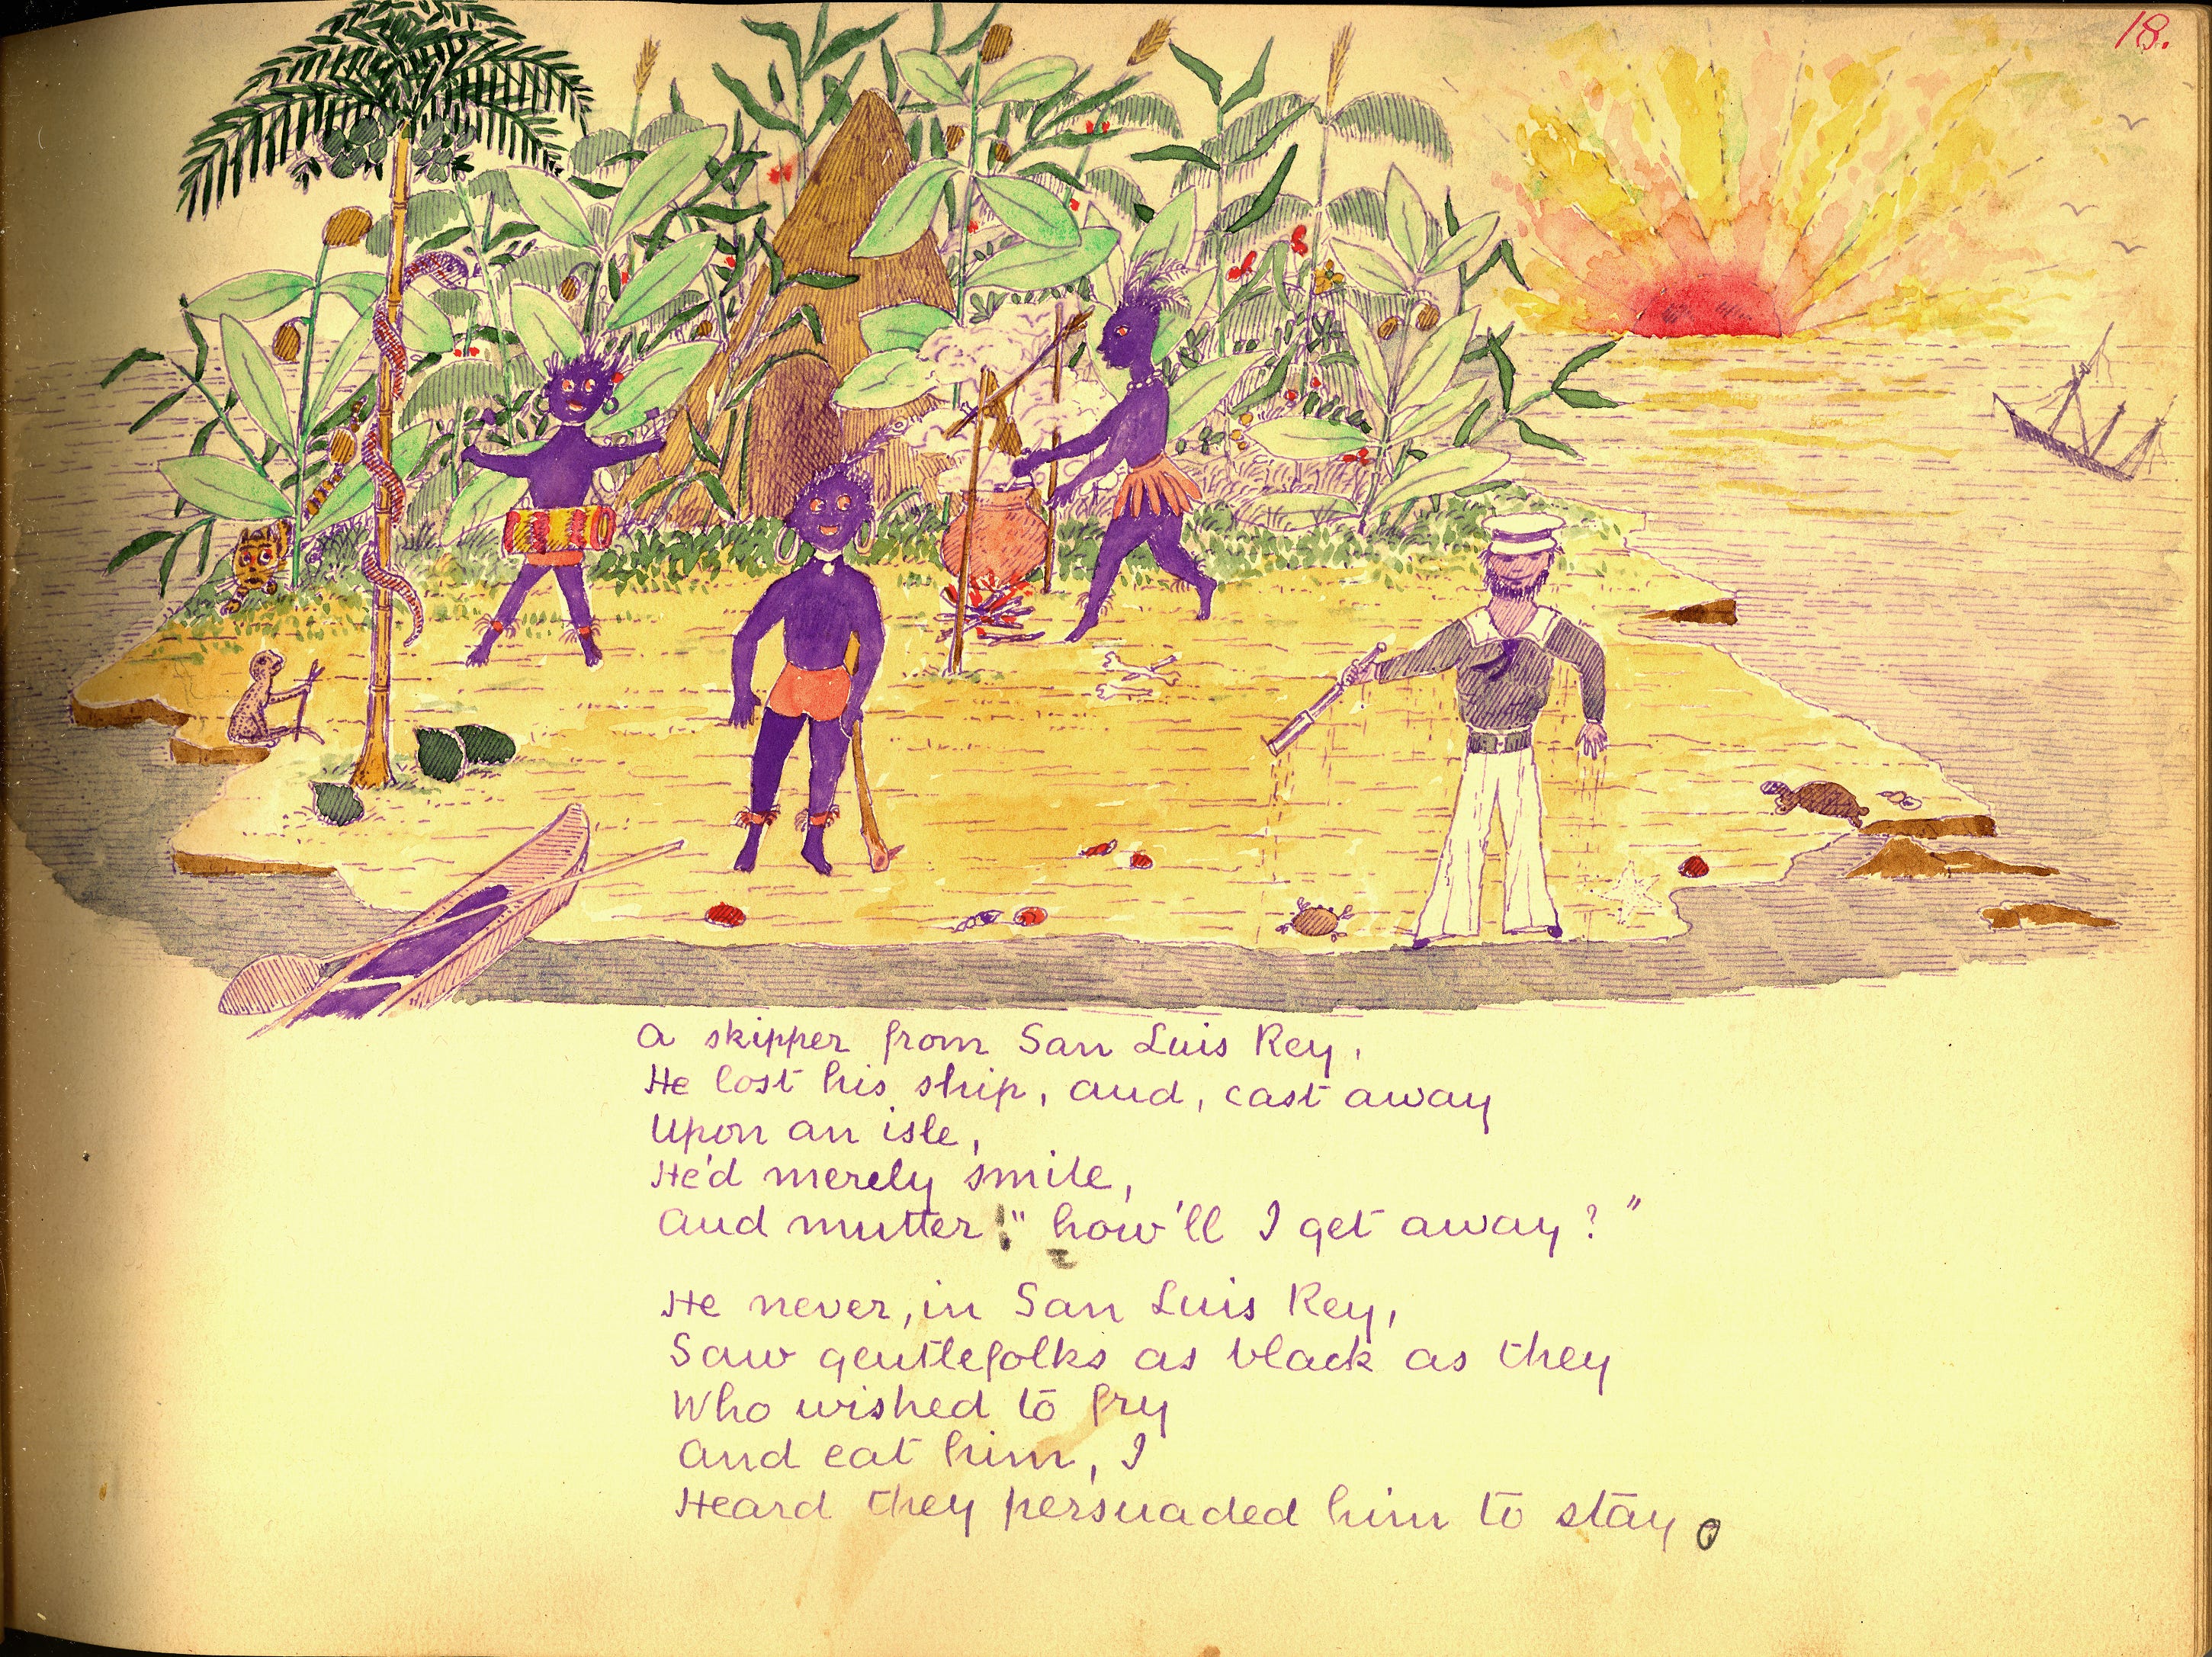 18.
A skipper from San Luis Rey,
He lost his ship, and, cast away
Upon an isle,
He'd merely smile,
And mutter: "how'll I get away?"
He never, in San Luis Rey,
Saw gentlefolks as black as they
Who wished to fry
And eat him, I
Heard they persuaded him to stay.